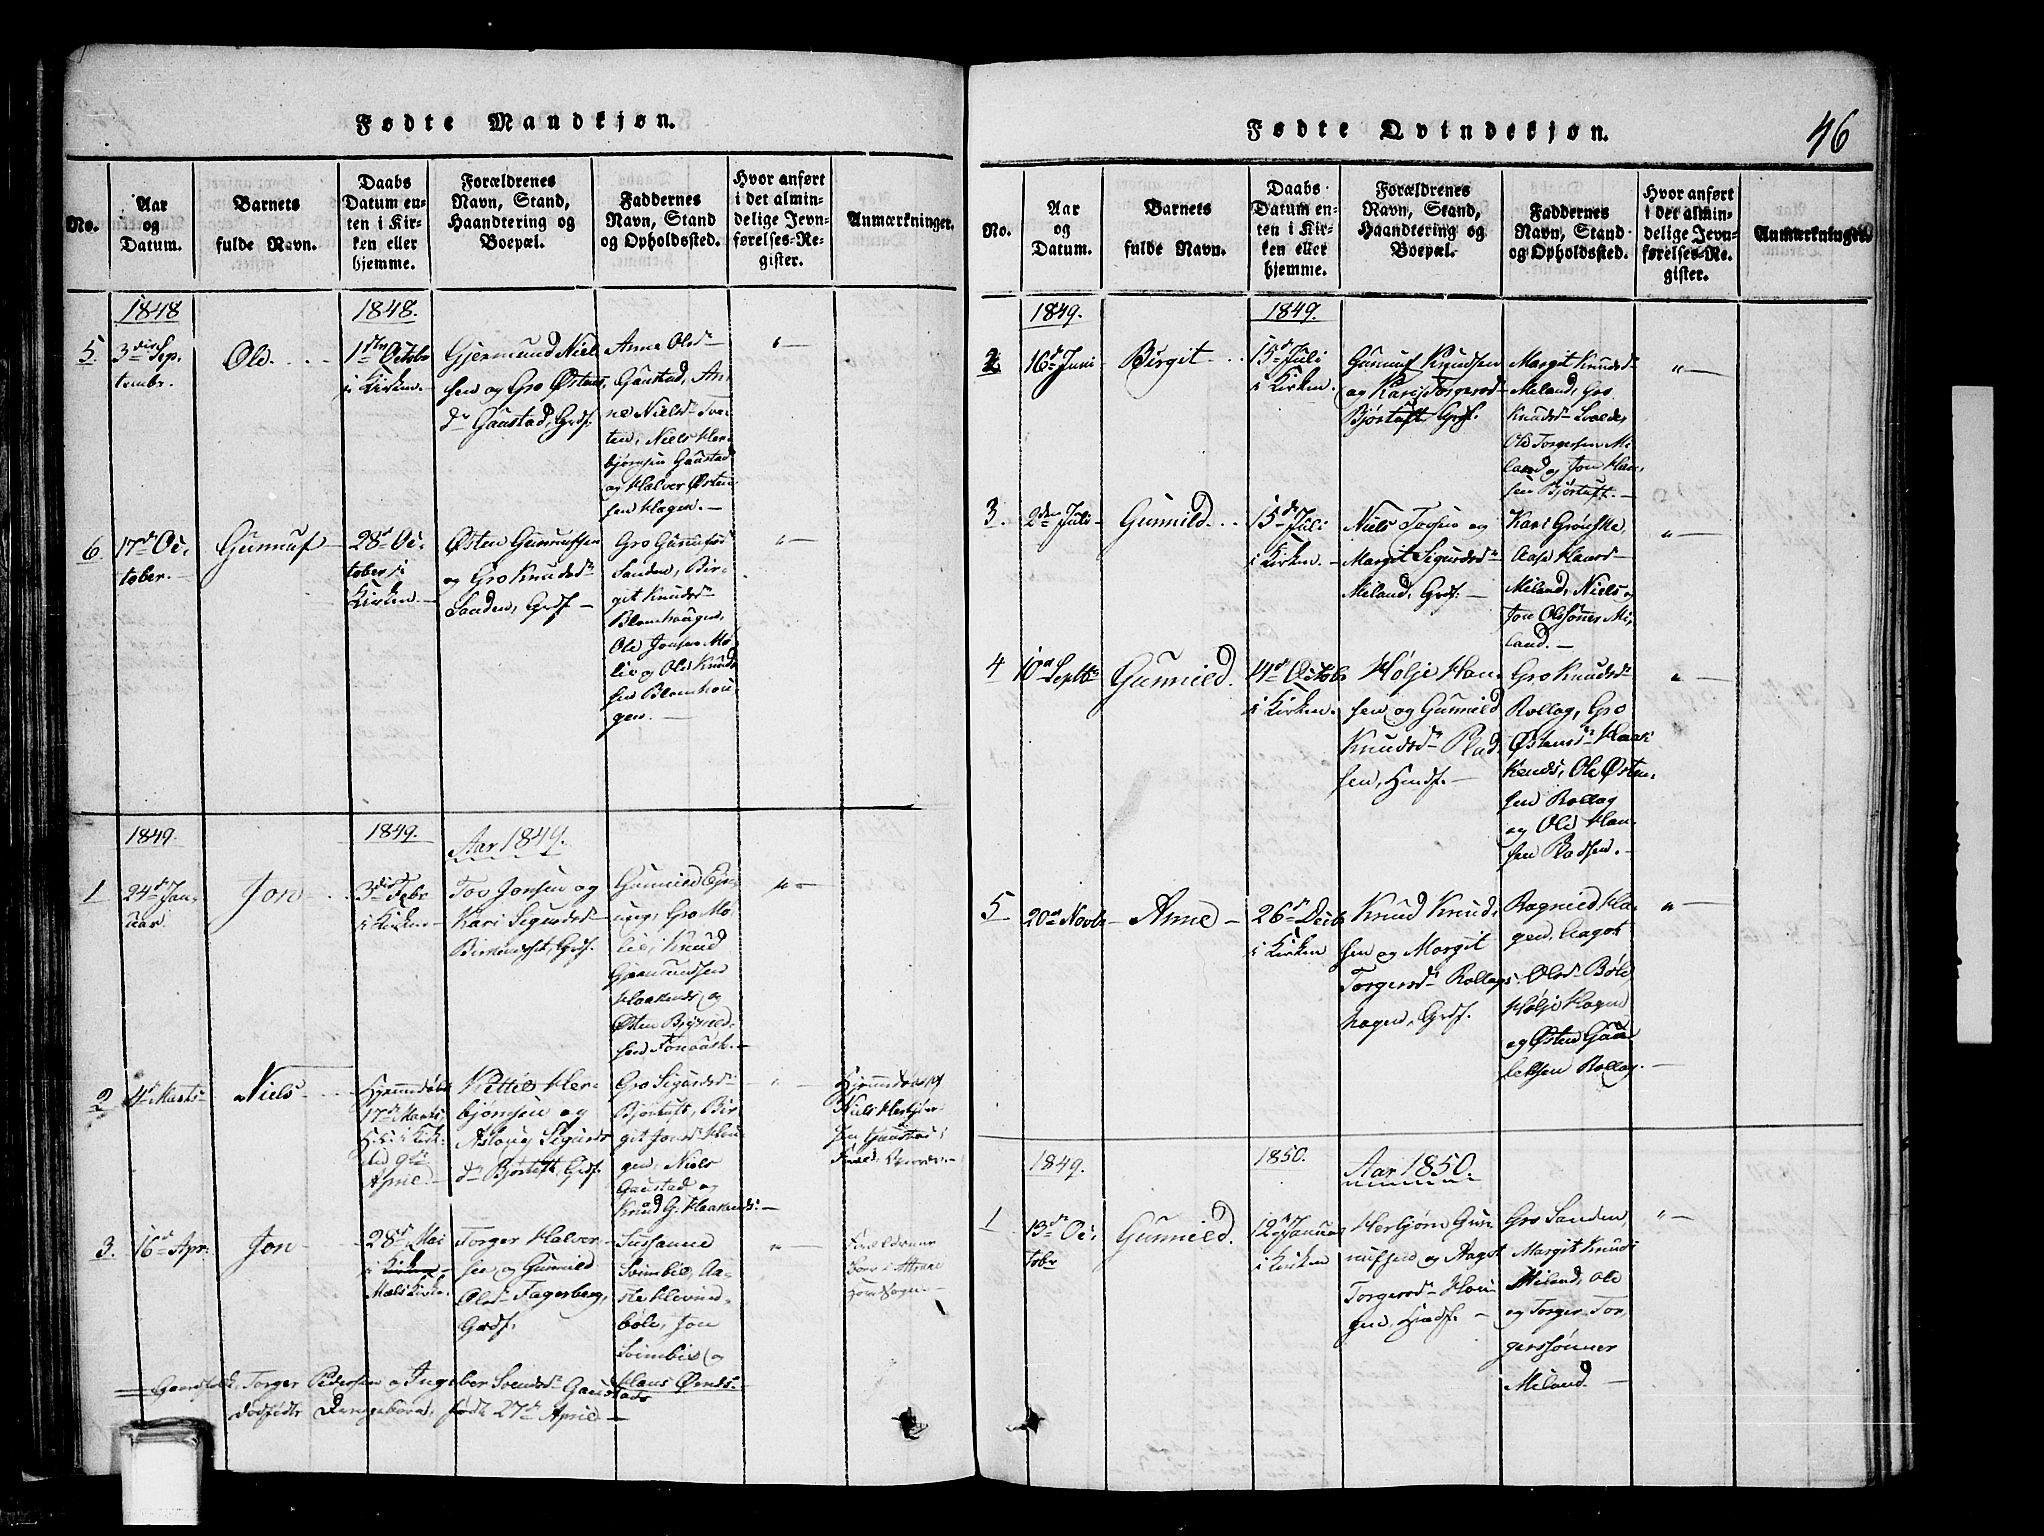 Fødte Mandkjøn.
No.
Aar
og
Datum.
Barnets
fulde Navn.
Daabs
Datum en-
ten i Kir-
ken eller
hjemme.
Forældrenes
Navn, Stand,
Haandtering og
Boepæl.
Faddernes
Navn, Stand
og Opholdssted.
Hvor anført
i det almin-
delige Jevn-
førelses-Re-
gister.
Anmærkninger.
1848
1848.
5.
3die Sep-
tembr.
Ole.
1ste Octobr
i Kirken.
Gjermund Niel
sen og Gro Østens
dr Gaustad, Grdf.
Anne Olsdr
Gaustad, An-
ne Nielsdr Tve-
ten, Niels Her-
bjørnsen Gaustad
og Halvor Østen-
sen Hagen. —
" —
6.
17de Oc-
tober. —
Gunnuf —
28de Oc-
tober i
Kirken —
Østen Gunnufsen
og Gro Knudsdr
Sanden, Grdf —
Gro Gunufsdr
Sanden, Bir-
git Knudsdr
Blomhougen,
Ole Jonsen Mø-
lie og Ole Knud-
sen Blomhou-
gen. —
" —
1849.
1849.
Aar 1849.
1
24de Jan-
uar.
Jon
3die Febr
i Kirken
Tov Jonsen og
Kari Sigurdsdr
Grdf.
Gunnild
Gro Mø-
lie, Knud
Gjermundsen
Haakenæs og
Østen
sen
" —
2
4de Marts
Niels
Hjemmedøbt
17de Marts
i Kir-
9de
April. —
Kittil Her-
bjørnsen og
Aslaug Sigurds
dr Bjørtuft, Grdf
Gro Sigurdsdr
Bjørtuft, Bir-
git Jonsdr Hou-
gen, Niels
Gaustad og
Knud G. Haakenæs. —
" —
Hjemmedøbt af
Niels Herbjørn-
sen Gaustad,
3.
16de Apr.
Jon
28de Mai
i Kirken
Mæls Kirke.
Torger Halvor-
sen og Gunnild
Olsdr Fagerberg,
Grdf.
Susanne
Svimbil, Aa-
ste
bøle, Jon
Svimbil og
Hans
" —
Forældrene
boer i Attraae
— Gaardfolk, Torger Pedersen og Ingebor Svendsdr Gaustads
dødfødte Drengebarn, født 27de April —
Fødte Qvindekjøn.
46
No.
Aar
og
Datum.
Barnets
fulde Navn.
Daabs
Datum en-
ten i Kir-
ken eller
hjemme.
Forældrenes
Navn, Stand,
Haandtering og
Boepæl.
Faddernes
Navn, Stand
og Opholdssted.
Hvor anført
i det almin-
delige Jevn-
førelses-Re-
gister.
Anmærkninger.
1849.
1849.
2
16de Juni
Birgit
15de Juli
i Kirken.
Gunnuf Knudsen
og Kari Torgersdr
Bjørtuft Grdf.
Margit Knudsdr
Meland, Gro
Knudsdr
Ole Torgersen Me-
land og Jon Han-
sen Bjørtuft. —
" —
3.
2den Juli
Gunnild.
15de Juli
i Kirken. —
Niels Tovsen og
Margit Sigurdsdr
Meland, Grdf. —
Kari Grønske,
Aase Haavsdr
Meland, Niels og
Jon Olssønner Me-
land. —
" —
4
10de Septbr
Gunnild.
14de Octobr
i Kirken.
Hølje Han-
sen og Gunnild
Knudsdr Rød-
sen, Husf. —
Gro Knudsdr
Rollag, Gro
Østensdr Haake-
kenæs, Ole Østen-
sen Rollag
og Ole Han-
sen Rødsen. —
" —
5
20de Novbr
Anne
26de Decbr
i Kirken
Knud Knud-
sen og Margit
Torgersdr Rollags-
hagen, Grdf.
Ragnild Ha-
gen, Aagot
Olsdr Bøle,
Hølje Hagen
og Østen
Rollag.
" —
1849.
1850.
Aar 1850.
1
13de Oc-
tobr
Gunnild.
12te Januar
i Kirken
Herbjørn Gun-
nufsen og Aagot
Torgersdr Hou-
gen, Husf. —
Gro Sanden,
Margit Knudsdr
Meland, Ole
og Torger Tor-
gerssønner
Meland. —
" —